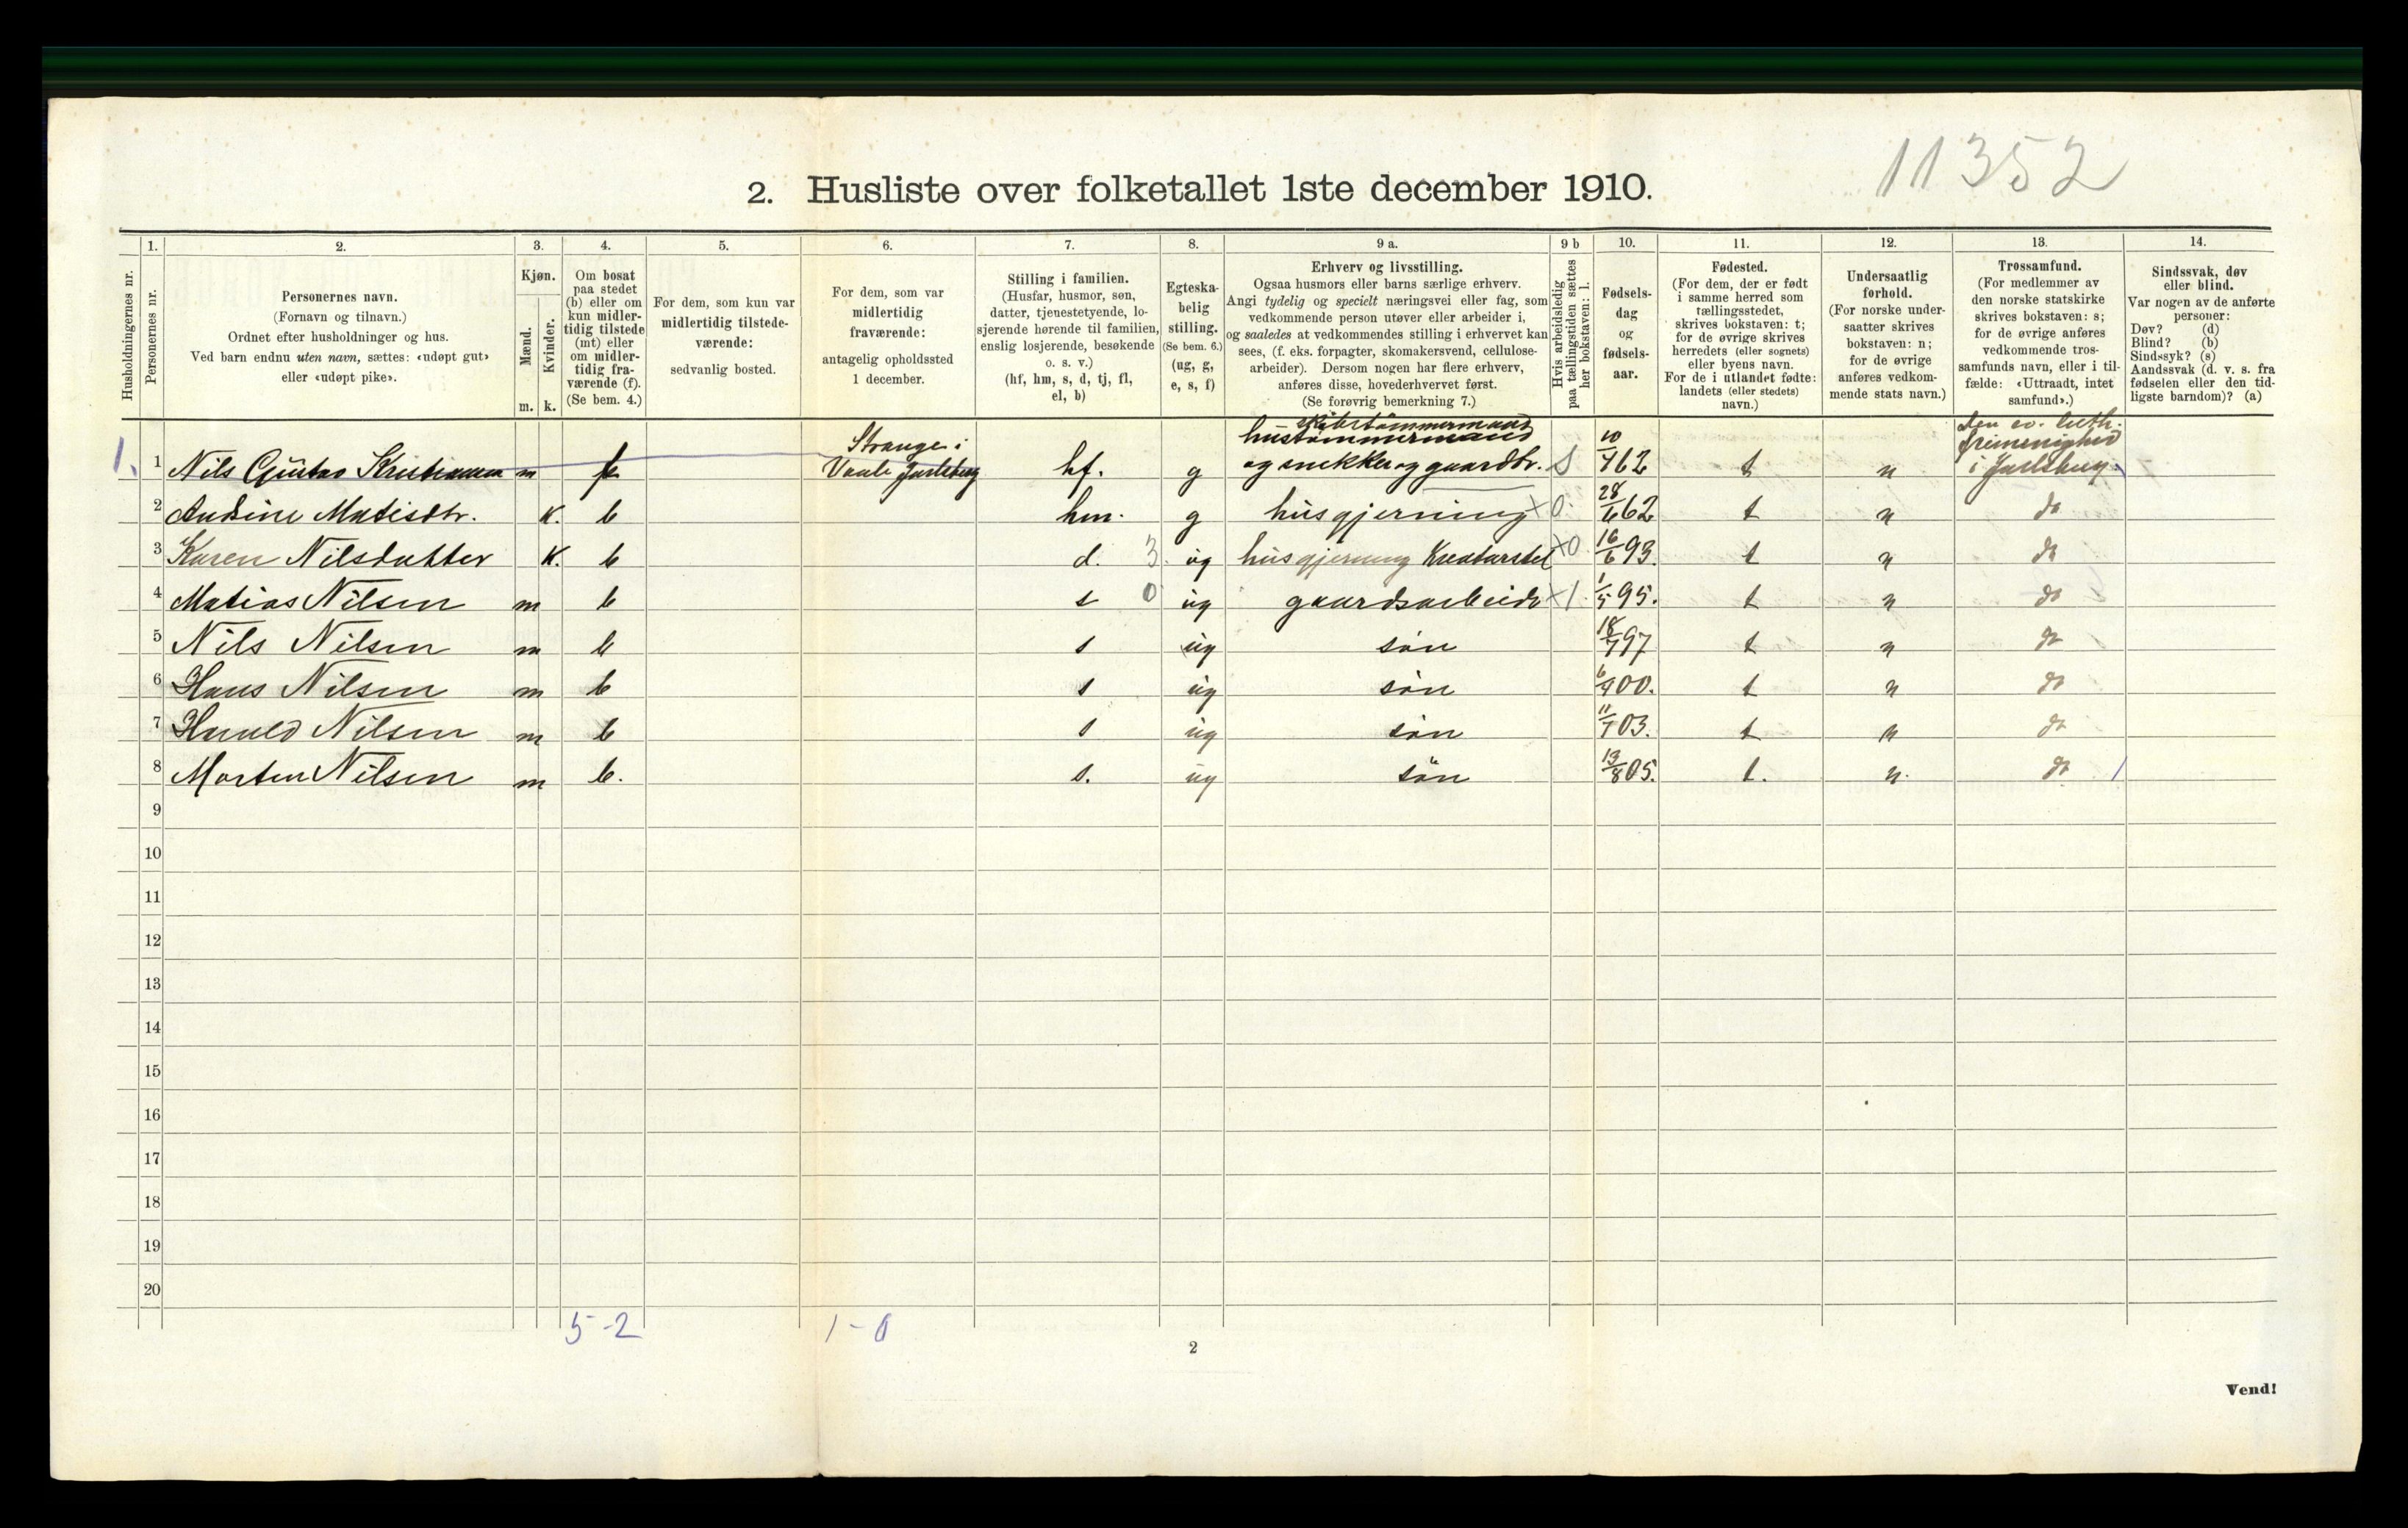 11352
2. Husliste over folketallet 1ste december 1910.
Husholdningernes nr.
1.
Personernes nr.
2.
Personernes navn.
(Fornavn og tilnavn.)
Ordnet efter husholdninger og hus.
Ved barn endnu uten navn, sættes: «udøpt gut»
eller «udøpt pike».
3.
Kjøn.
Mænd.
Kvinder.
m. k.
4.
Om bosat
paa stedet
(b) eller om
kun midler-
tidig tilstede
(mt) eller
om midler-
tidig fra-
værende (f).
(Se bem. 4.)
5.
For dem, som kun var
midlertidig tilstede-
værende:
sedvanlig bosted.
6.
For dem, som var
midlertidig
fraværende:
antagelig opholdssted
1 december.
7.
Stilling i familien.
(Husfar, husmor, søn,
datter, tjenestetyende, lo-
sjerende hørende til familien,
enslig losjerende, besøkende
o. s. v.)
(hf, hm, s, d, tj, fl,
el, b)
8.
Egteska-
belig
stilling.
(Se bem. 6.)
(ug, g,
e, s, f)
9 a.
Erhverv og livsstilling.
Ogsaa husmors eller barns særlige erhverv.
Angi tydelig og specielt næringsvei eller fag, som
vedkommende person utøver eller arbeider i,
og saaledes at vedkommendes stilling i erhvervet kan
sees, (f. eks. forpagter, skomakersvend, cellulose-
arbeider). Dersom nogen har flere erhverv,
anføres disse, hovederhvervet først.
(Se forøvrig bemerkning 7.)
9 b
Hvis arbeidsledig
paa tællingstiden sættes
her bokstaven: l.
10.
Fødsels-
dag
og
fødsels-
aar.
11.
Fødested.
(For dem, der er født
i samme herred som
tællingsstedet,
skrives bokstaven: t;
for de øvrige skrives
herredets (eller sognets)
eller byens navn.
For de i utlandet fødte:
landets (eller stedets)
navn.)
12.
Undersaatlig
forhold.
(For norske under-
saatter skrives
bokstaven: n;
for de øvrige
anføres vedkom-
mende stats navn.)
13.
Trossamfund.
(For medlemmer av
den norske statskirke
skrives bokstaven: s;
for de øvrige anføres
vedkommende tros-
samfunds navn, eller i til-
fælde: «Uttraadt, intet
samfund».)
14.
Sindssvak, døv
eller blind.
Var nogen av de anførte
personer:
Døv? (d)
Blind? (b)
Sindssyk? (s)
Aandssvak (d. v. s. fra
fødselen eller den tid-
ligste barndom)? (a)
skibstømmermand
hustømmermand
den ev. luth.
Strange i
frimenighed
1. 1 Nils Gustav Kristiansen m f Vaale Jarlsberg hf. g og snekker og gaardbr. S 10/4 62 t n i Jarlsberg
2 Andine Matisdtr. K. b hm. g husgjerning x0 28/6 62 t n do
3 Karen Nilsdatter K. b d. 3 ug husgjerning Kreaturstel x0 16/6 93. t n do
4 Matias Nilsen m b s 0 ug gaardsarbeide x1 1/5 95. t n do
5 Nils Nilsen m b s ug søn 18/7 97 t n do
6 Hans Nilsen m b s ug søn 6/9 00. t n do
7 Harald Nilsen m b s ug søn 11/7 03. t n do
8 Morten Nilsen m b. s. ug søn 13/8 05. t. n. do
9
10
11
12
13
14
15
16
17
18
19
20
5-2 1-0
2
Vend!